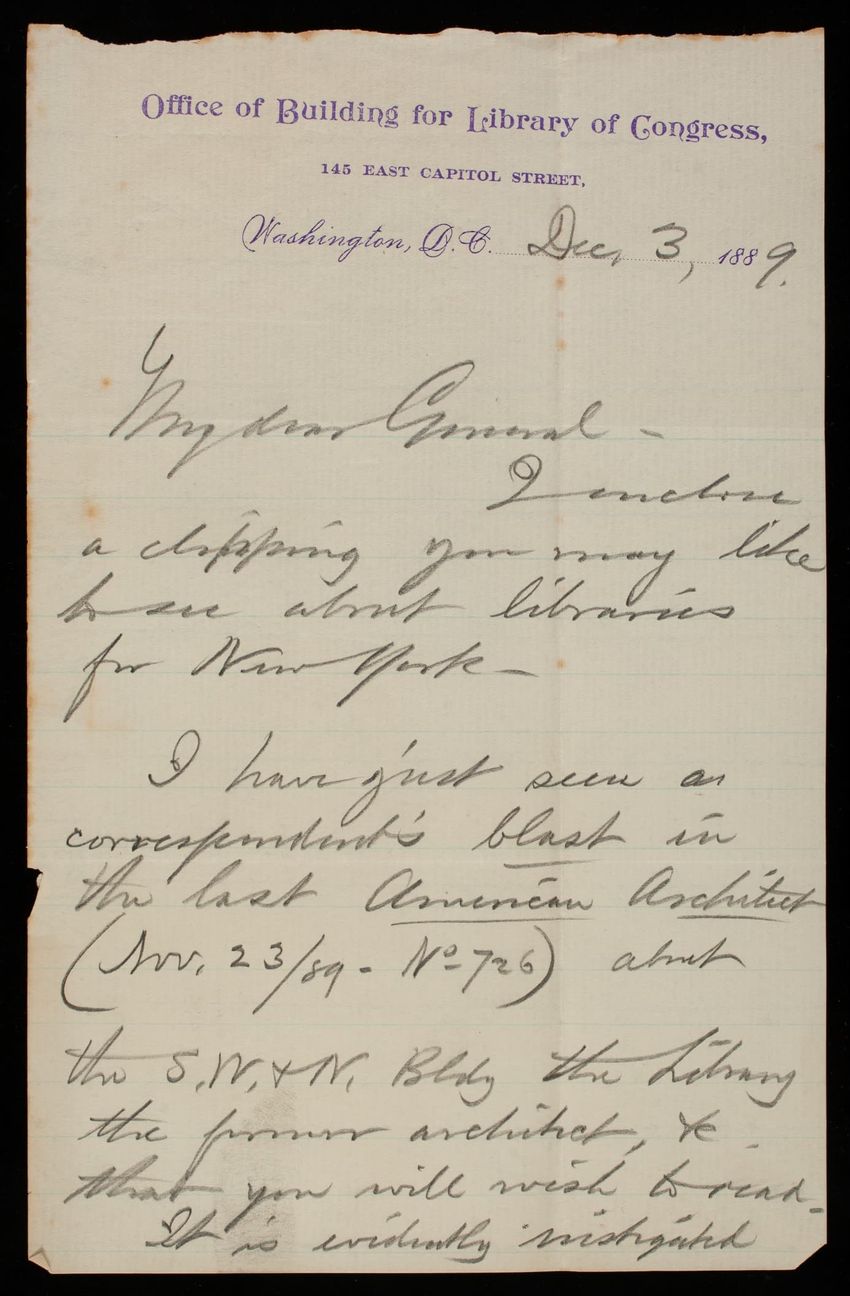 Office of Building for Library of Congress,
145 EAST CAPITOL STREET,
Washington, D.C. Dec. 3, 1889.
My dear General -
I enclose
a clipping you may like
to see about libraries
for New York -
I have just seen a
correspondent's blast in
the last American Architect
(Nov. 23/89 - No 726) about
the S. W. & N. Bldg the Library
the former architect, &c
that you will wish to read -
It is evidently instigated